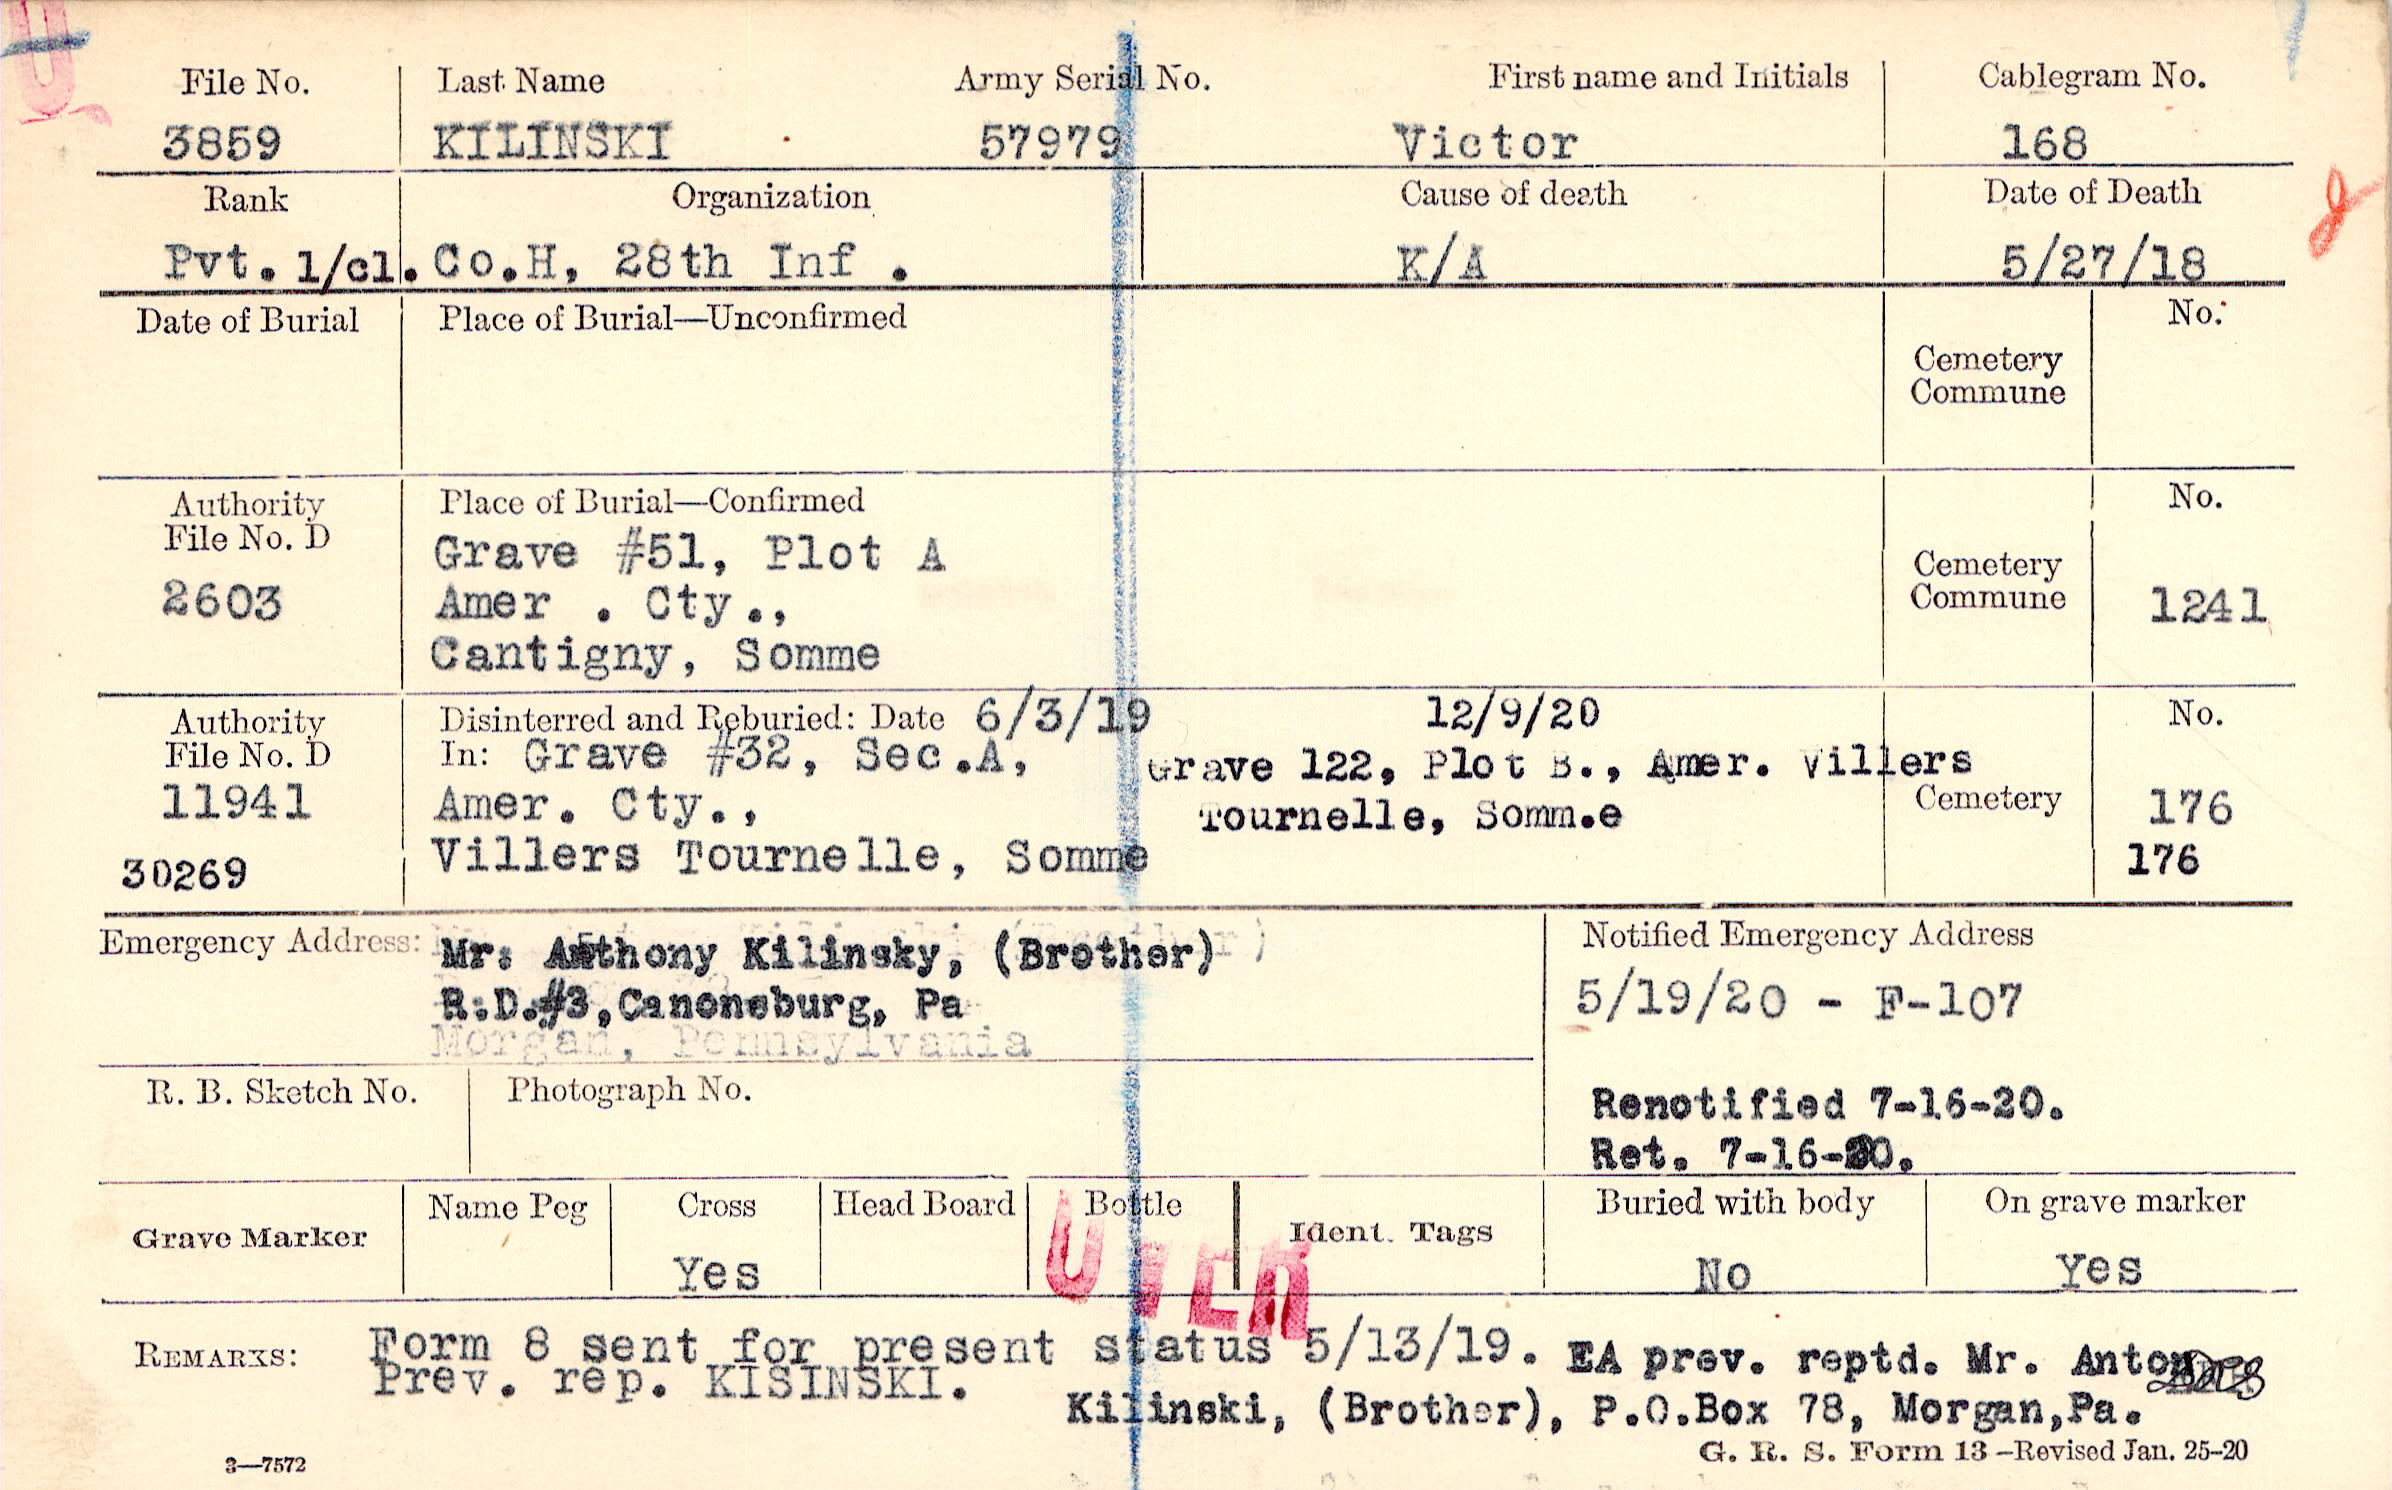 File No. Last Name Army Serial No. First name and Initials Cablegram No.
3859 KILINSKI 57979 Victor 168
Rank Organization Cause of death Date of Death
Pvt. 1/cl. Co.H, 28th Inf . K/A 5/27/18
Date of Burial Place of Burial—Unconfirmed No.
Cemetery
Commune
Authority Place of Burial—Confirmed No.
File No. D Grave #51, Plot A
Cemetery
2603 Amer . Cty., Commune 1241
Cantigny, Somme
Authority Disinterred and Reburied: Date 6/3/19 12/9/20 No.
File No. D In: Grave #32, Sec.A, Grave 122, Plot B., Amer. Villers
11941 Amer. Cty., Tournelle, Somm.e Cemetery 176
30269 Villers Tournelle, Somme 176
Emergency Address: Mr: Anthony Kilinsky, (Brother) Notified Emergency Address
R:D.#3,Canonsburg, Pa 5/19/20 - F-107
Morgan, Pennsylvania
R. B. Sketch No. Photograph No. Renotified 7-16-20.
Ret. 7-16-20.
Grave Marker Name Peg Cross Head Board Bottle Ident. Tags Buried with body On grave marker
Yes No Yes
REMARKS: Form 8 sent for present status 5/13/19. EA prev. reptd. Mr. Anton
Prev. rep. KISINSKI. Kilinski, (Brother), P.O.Box 78, Morgan,Pa.
3—7572 G. R. S. Form 13—Revised Jan. 25-20